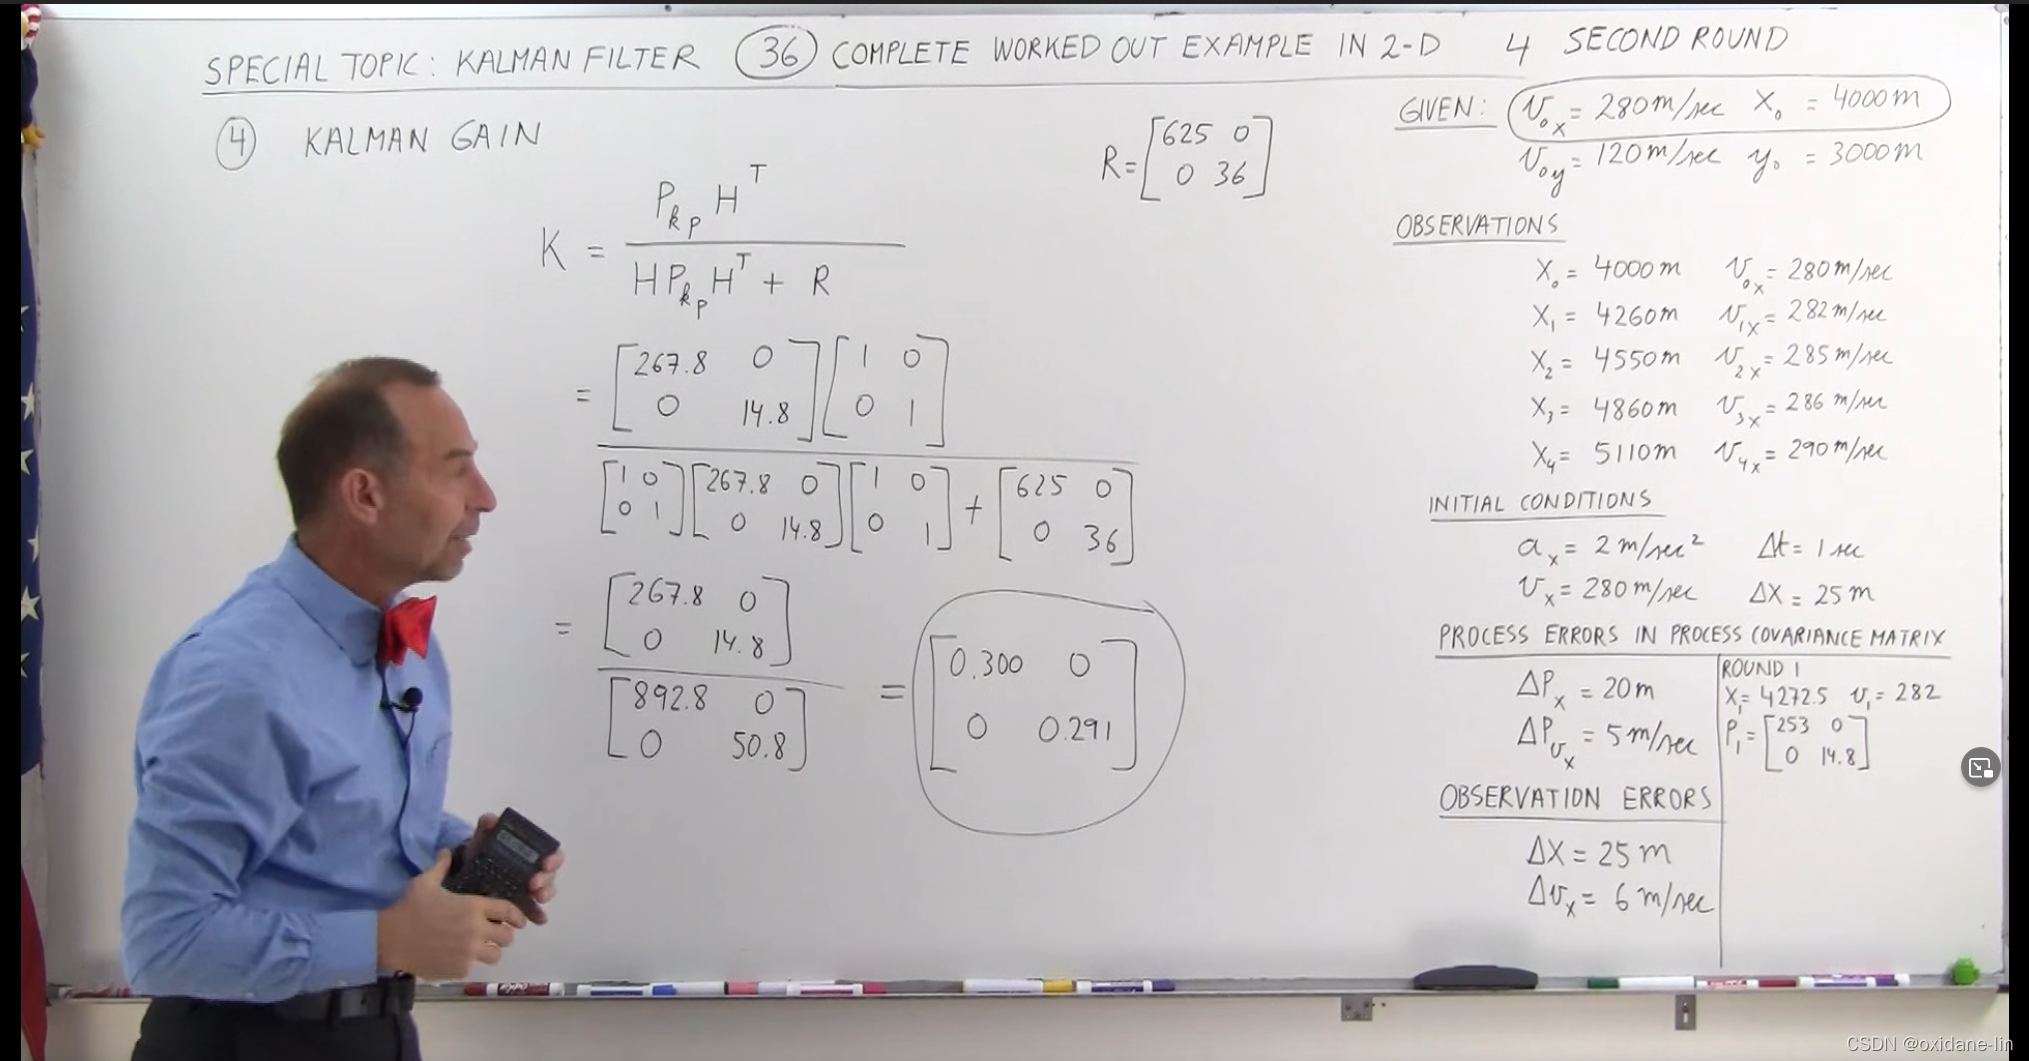 SPECIAL TOPIC: KALMAN FILTER (36) COMPLETE WORKED OUT EXAMPLE IN 2-D 4 SECOND ROUND
(4) KALMAN GAIN
R = [625 0
0 36]
K = P_kp H^T
H P_kp H^T + R
= [267.8 0] [1 0]
[0 14.8] [0 1]
[1 0] [267.8 0] [1 0] + [625 0]
[0 1] [0 14.8] [0 1] [0 36]
= [267.8 0]
[0 14.8]
[892.8 0]
[0 50.8]
= [0.300 0]
[0 0.291]
GIVEN: v_0x = 280 m/sec X_0 = 4000 m
v_0y = 120 m/sec y_0 = 3000 m
OBSERVATIONS
X_0 = 4000 m v_0x = 280 m/sec
X_1 = 4260 m v_1x = 282 m/sec
X_2 = 4550 m v_2x = 285 m/sec
X_3 = 4860 m v_3x = 286 m/sec
X_4 = 5110 m v_4x = 290 m/sec
INITIAL CONDITIONS
a_x = 2 m/sec² Δt = 1 sec
v_x = 280 m/sec ΔX = 25 m
PROCESS ERRORS IN PROCESS COVARIANCE MATRIX
ΔP_x = 20 m
ΔP_vx = 5 m/sec
ROUND 1
X_1 = 4272.5 v_1 = 282
P_1 = [253 0
0 14.8]
OBSERVATION ERRORS
ΔX = 25 m
Δv_x = 6 m/sec
CSDN @oxidane-lin